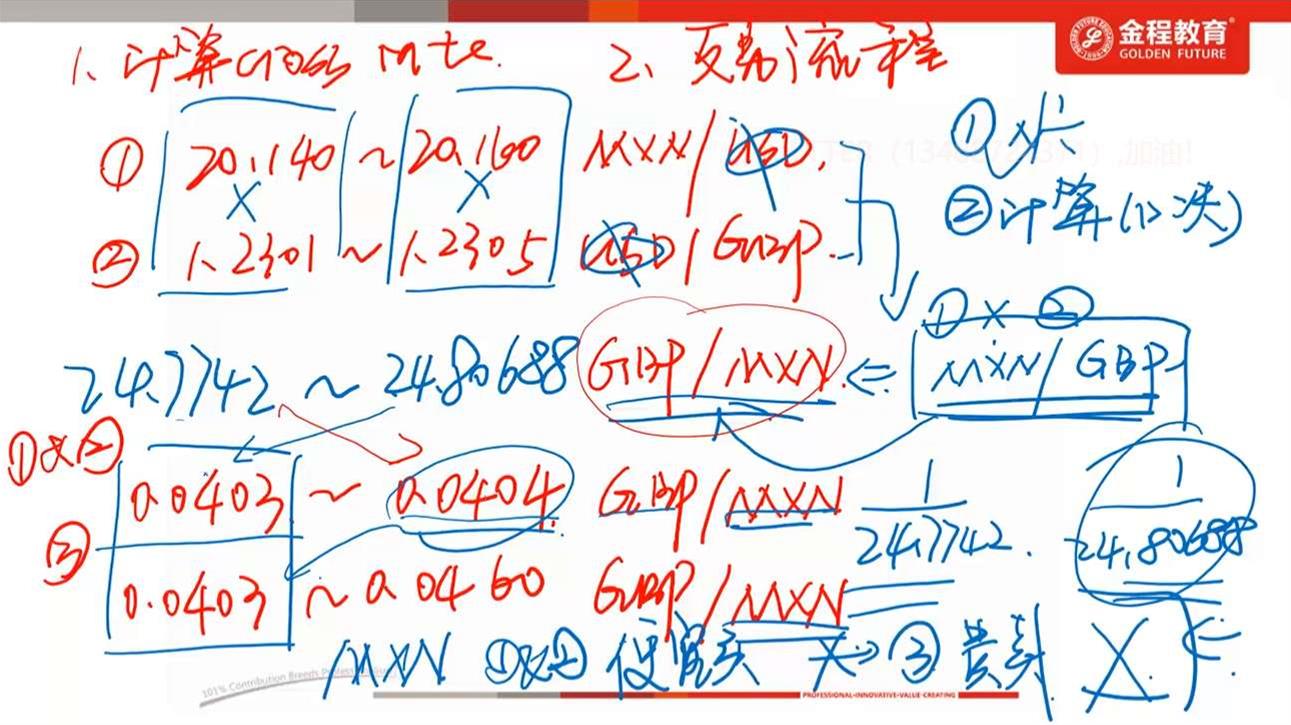 金程教育
GOLDEN FUTURE
1、计算cross rate. 2、交易流程
① 20.140 ~ 20.160 MXN/USD.
② 1.2301 ~ 1.2305 USD/GBP.
①
② 计算(12次)
① × ②
24.7742 ~ 24.80688 GBP/MXN. ⇐ MXN/GBP
①&② 0.0403 ~ 0.0404 GBP/MXN 1/24.7742. 1/24.80688
③ 0.0403 ~ 0.0460 GBP/MXN
MXN ①&② 便宜买 ③ 贵卖
101% Contribution Breeds Professionalism
PROFESSIONAL·INNOVATIVE·VALUE-CREATING